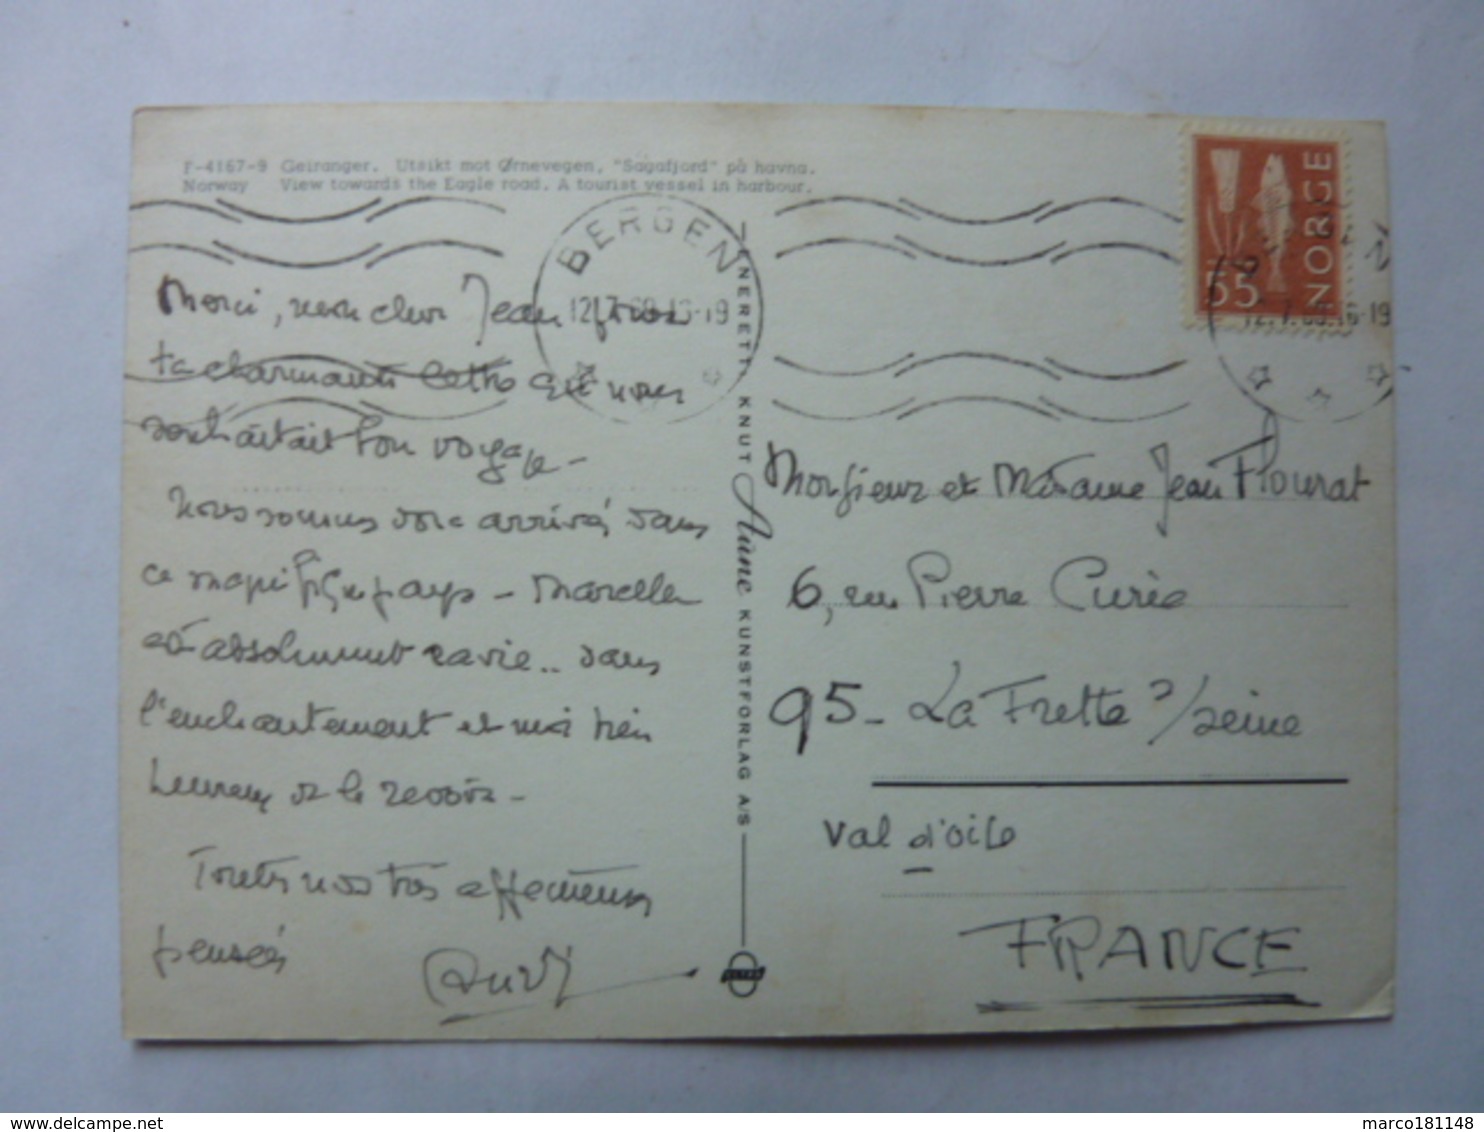 F-4167-9 Geiranger. Utsikt mot Ørnevegen, "Sagafjord" på havna.
Norway View towards the Eagle road. A tourist vessel in harbour.
BERGEN
NORGE
55
Merci, mon cher Jean pour
ta charmante lettre qui nous
souhaitait bon voyage -
Nous sommes donc arrivés dans
ce magnifique pays - Marcelle
est absolument ravie.. dans
l'enchantement et moi bien
heureux de le revoir -
Toutes nos très affectueuses
pensées
ENERETT KNUT Aune KUNSTFORLAG A/S
Monsieur et Madame Jean Flourat
6, rue Pierre Curie
95 - La Frette s/seine
Val d'oise
FRANCE
marco181148